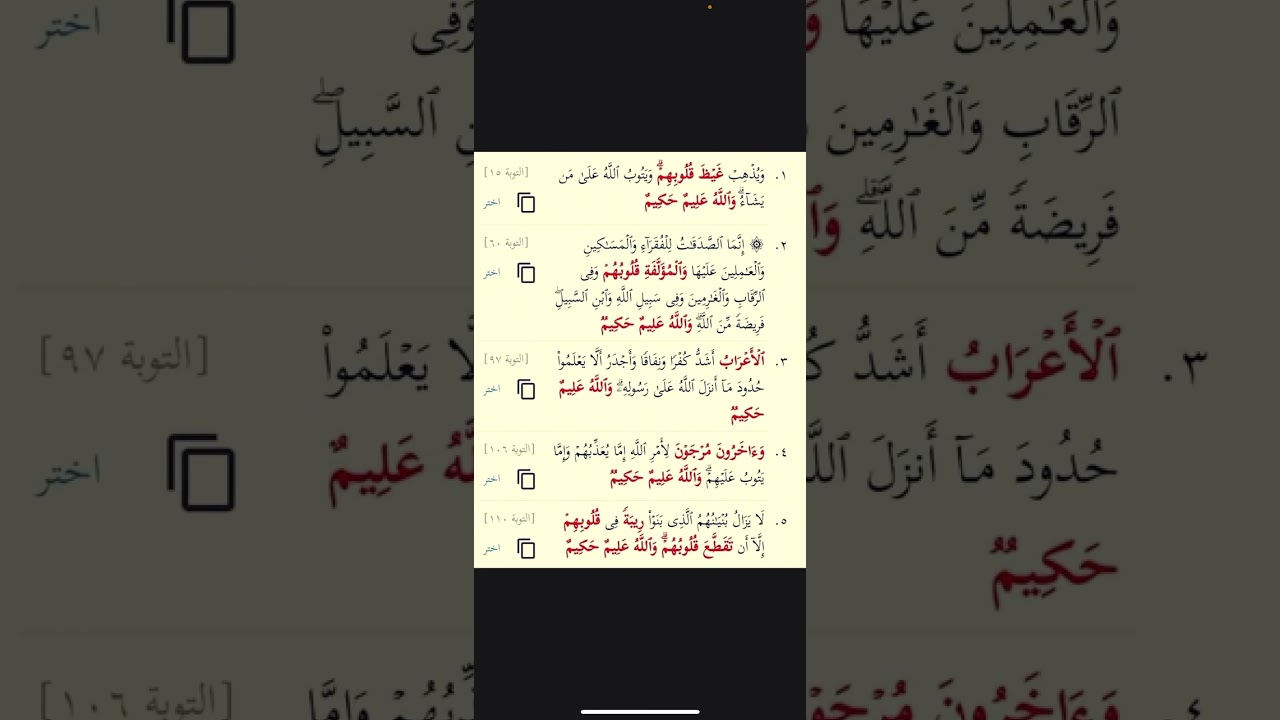 ١. وَيُذْهِبْ غَيْظَ قُلُوبِهِمْ ۗ وَيَتُوبُ ٱللَّهُ عَلَىٰ مَن [التوبة ١٥]
يَشَآءُ ۗ وَٱللَّهُ عَلِيمٌ حَكِيمٌ اختر
٢. ۞ إِنَّمَا ٱلصَّدَقَـٰتُ لِلْفُقَرَآءِ وَٱلْمَسَـٰكِينِ [التوبة ٦٠]
وَٱلْعَـٰمِلِينَ عَلَيْهَا وَٱلْمُؤَلَّفَةِ قُلُوبُهُمْ وَفِى اختر
ٱلرِّقَابِ وَٱلْغَـٰرِمِينَ وَفِى سَبِيلِ ٱللَّهِ وَٱبْنِ ٱلسَّبِيلِ ۖ
فَرِيضَةً مِّنَ ٱللَّهِ ۗ وَٱللَّهُ عَلِيمٌ حَكِيمٌ
٣. ٱلْأَعْرَابُ أَشَدُّ كُفْرًا وَنِفَاقًا وَأَجْدَرُ أَلَّا يَعْلَمُوا۟ [التوبة ٩٧]
حُدُودَ مَآ أَنزَلَ ٱللَّهُ عَلَىٰ رَسُولِهِۦ ۗ وَٱللَّهُ عَلِيمٌ اختر
حَكِيمٌ
٤. وَءَاخَرُونَ مُرْجَوْنَ لِأَمْرِ ٱللَّهِ إِمَّا يُعَذِّبُهُمْ وَإِمَّا [التوبة ١٠٦]
يَتُوبُ عَلَيْهِمْ ۗ وَٱللَّهُ عَلِيمٌ حَكِيمٌ اختر
٥. لَا يَزَالُ بُنْيَـٰنُهُمُ ٱلَّذِى بَنَوْا۟ رِيبَةً فِى قُلُوبِهِمْ [التوبة ١١٠]
إِلَّآ أَن تَقَطَّعَ قُلُوبُهُمْ ۗ وَٱللَّهُ عَلِيمٌ حَكِيمٌ اختر